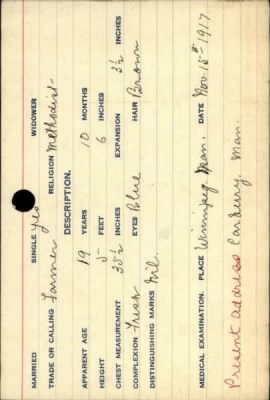 MARRIED SINGLE Yes WIDOWER
TRADE OR CALLING Farmer RELIGION Methodist-
DESCRIPTION.
APPARENT AGE 19 YEARS 10 MONTHS
HEIGHT 5- FEET 6 INCHES
CHEST MEASUREMENT 35½ INCHES EXPANSION 3½ INCHES
COMPLEXION Fresh EYES Blue HAIR Brown
DISTINGUISHING MARKS Nil.
MEDICAL EXAMINATION. PLACE Winnipeg Man. DATE Nov. 15th 1917
Present address Carberry, Man.